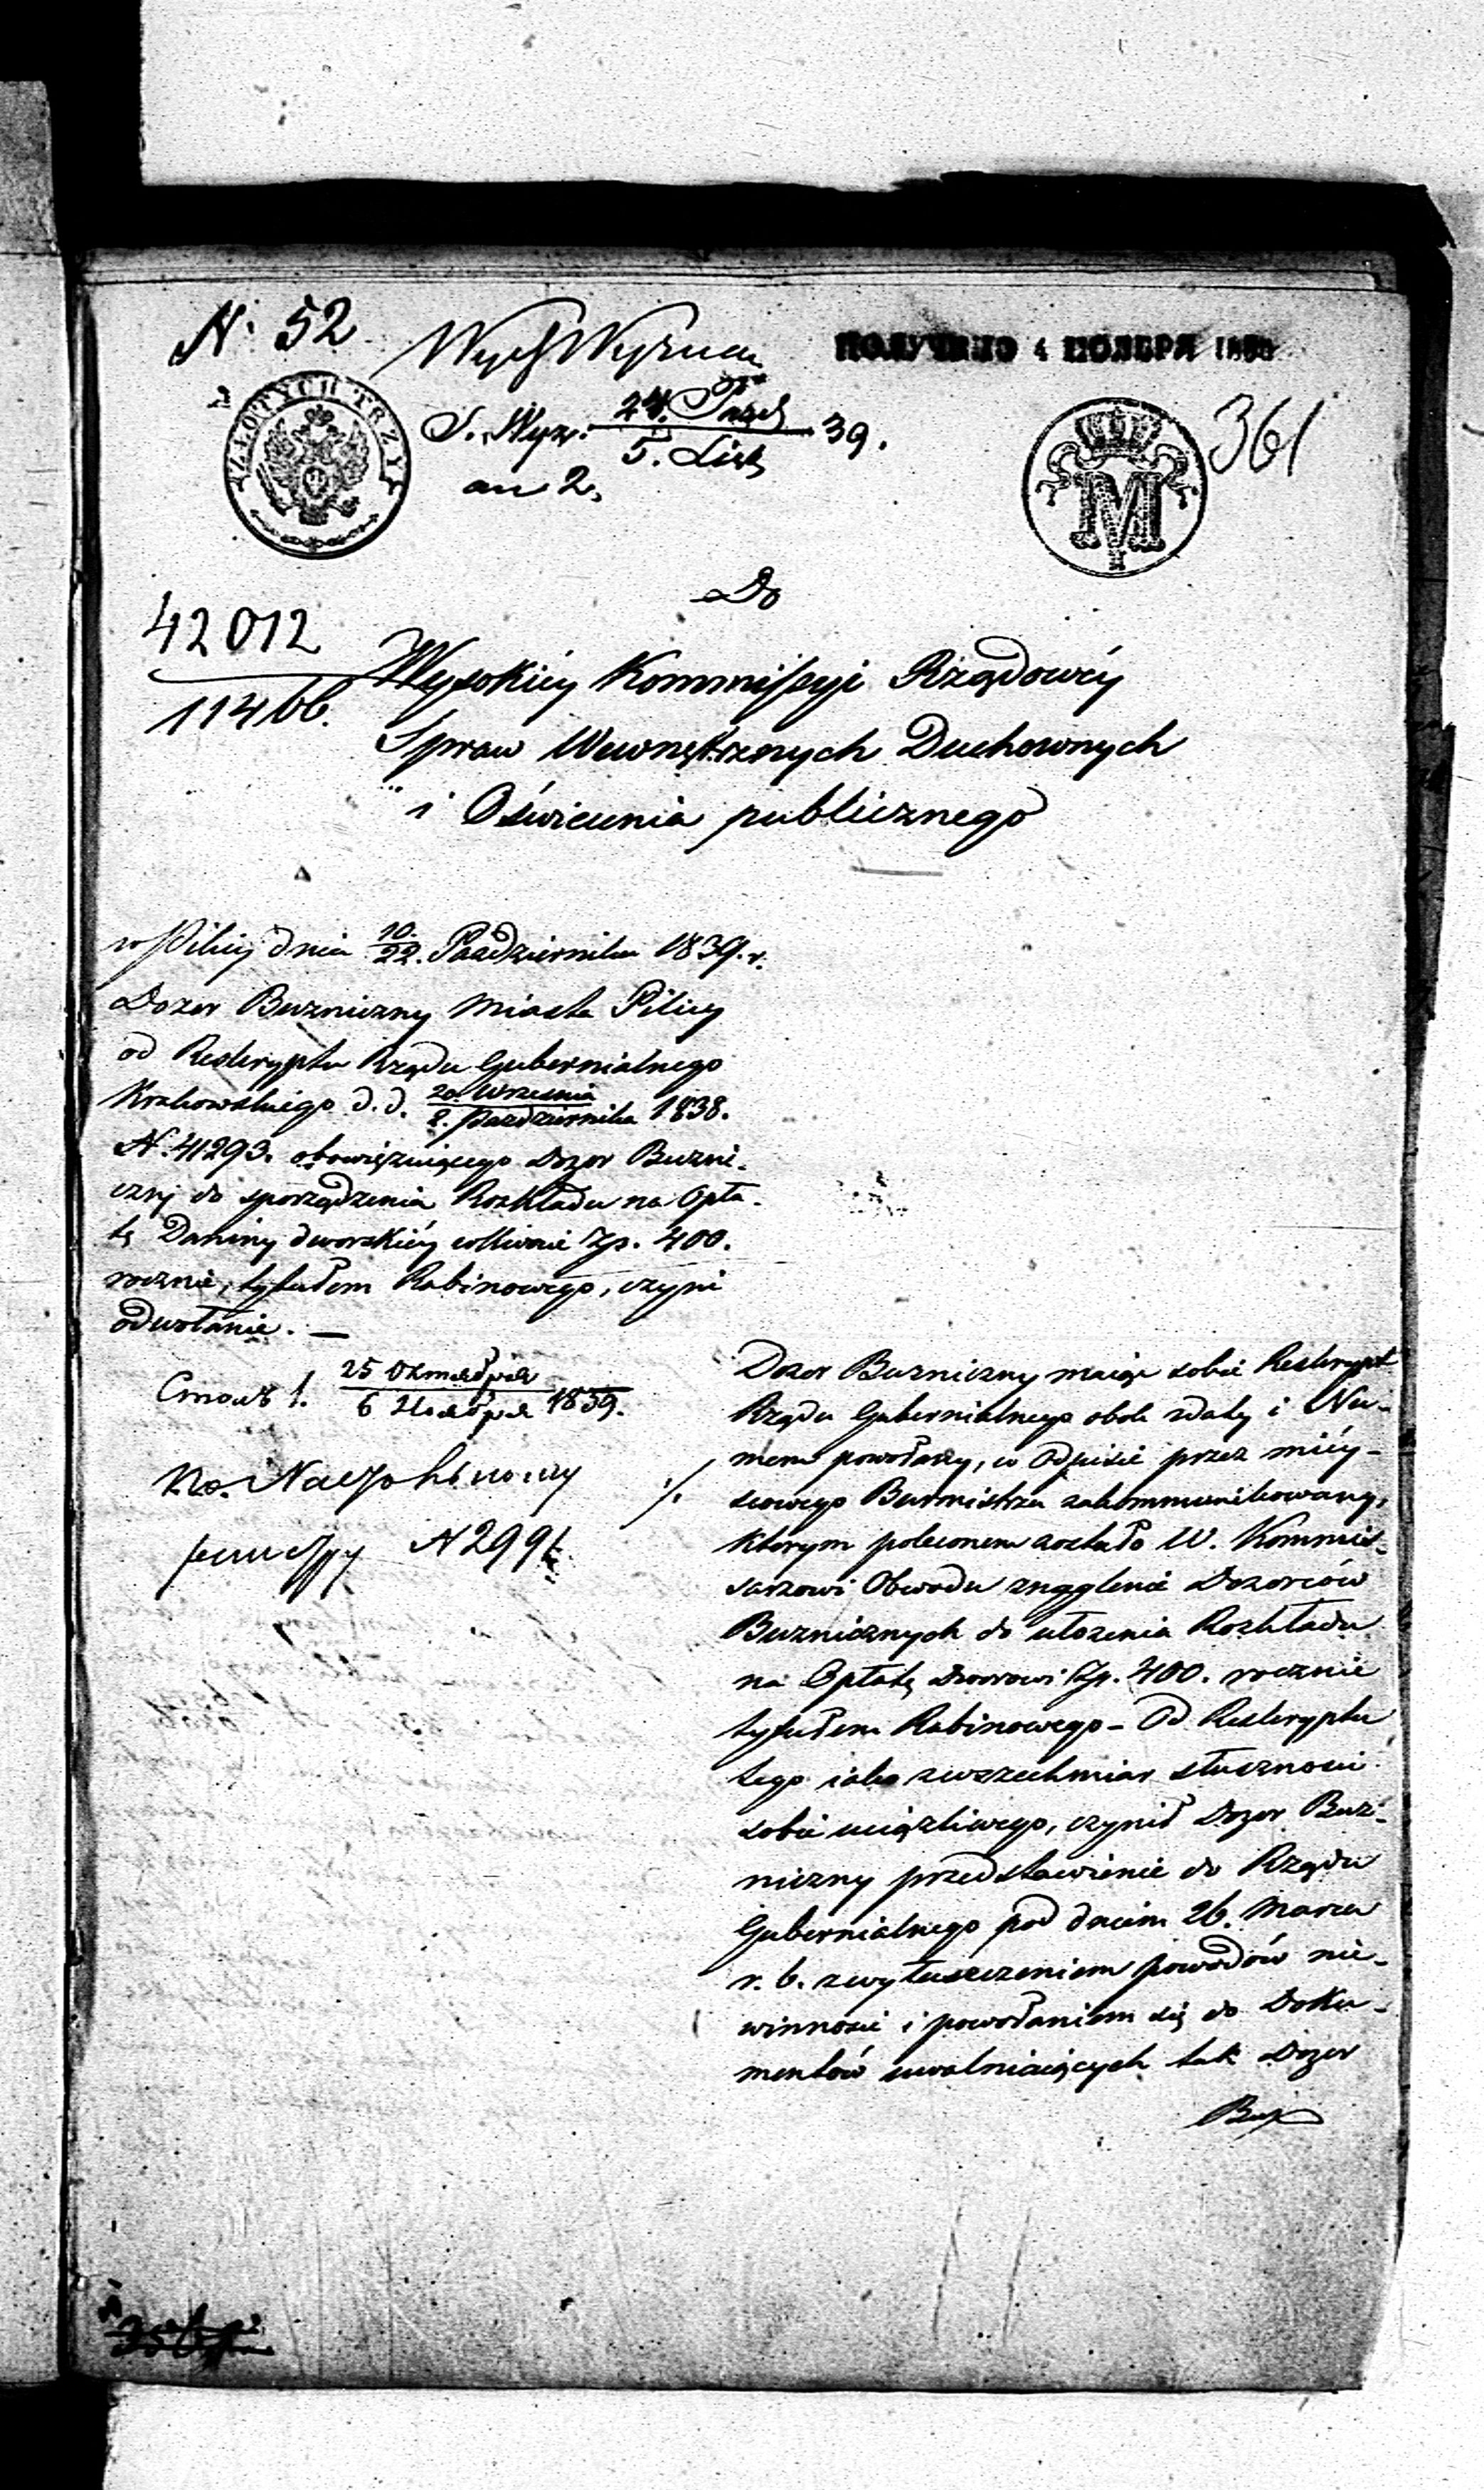 N. 52
ПОЛУЧЕНО 4 НОЯБРЯ
ZŁOTYCH TRZY
24. Paźd
5. List 39.
361
M
Do
42012
11466.
Wysokiéy Kommissyi Rządowéy
Spraw Wewnętrznych Duchownych
i Oświecenia publicznego
w Pilicy dnia 10./22. Października 1839. r.
Dozor Bozniczny Miasta Pilicy
od Reskryptu Rządu Gubernialnego
Krakowskiego d. d. 20. Września/2. Października 1838.
N. 41293. obowięzuiącego Dozor Bozni-
czny do sporządzenia Rozkładu na Opła-
tę Daniny dworskiéy Zp. 400.
rocznie, tytułem Rabinowego, czyni
odwołanie. —
25 Октября
6 Ноября 1839.
N 2991
Dozor Bozniczny maiąc sobie Reskrypt
Rządu Gubernialnego obok z daty i Nu-
meru powołany, w Odpisie przez miéy-
scowego Burmistrza zakommunikowany,
którym poleconem zostało W. Kommis-
sarzowi Obwodu znaglenie Dozorców
Bozniczych do ułożenia Rozkładu
na Opłatę Dworowi Zp. 400. rocznie
tytułem Rabinowego – Od Reskryptu
tego iako zewszechmiar słuszności
sobie uciążliwego, czynił Dozor Boz-
niczny przedstawienie do Rządu
Gubernialnego pod dniem 26. Marca
r. b. z wyłuszczeniem powodów nie-
winności i powołaniem się do Doku-
mentów uwalniaiących tak Dozor
Boz